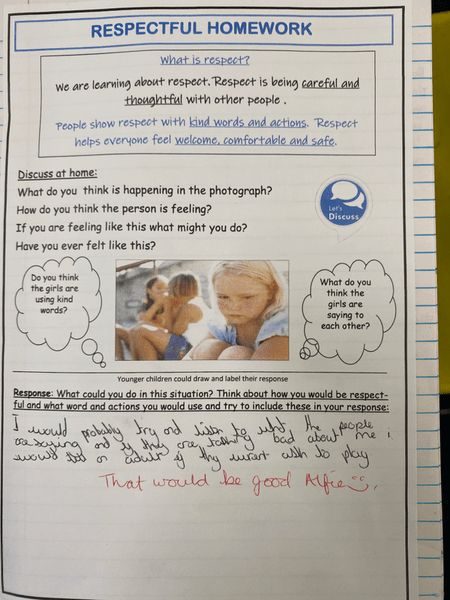 RESPECTFUL HOMEWORK
What is respect?
We are learning about respect. Respect is being careful and
thoughtful with other people .
People show respect with kind words and actions. Respect
helps everyone feel welcome, comfortable and safe.
Discuss at home:
What do you think is happening in the photograph?
How do you think the person is feeling?
If you are feeling like this what might you do?
Have you ever felt like this?
Let's
Discuss
Do you think
the girls are
using kind
words?
What do you
think the
girls are
saying to
each other?
Younger children could draw and label their response
Response: What could you do in this situation? Think about how you would be respect-
ful and what word and actions you would use and try to include these in your response:
I would probably try and listen to what the people
are saying and if they are talking bad about me i
would tell an adult if they wont with to play
That would be good Alfie☺.